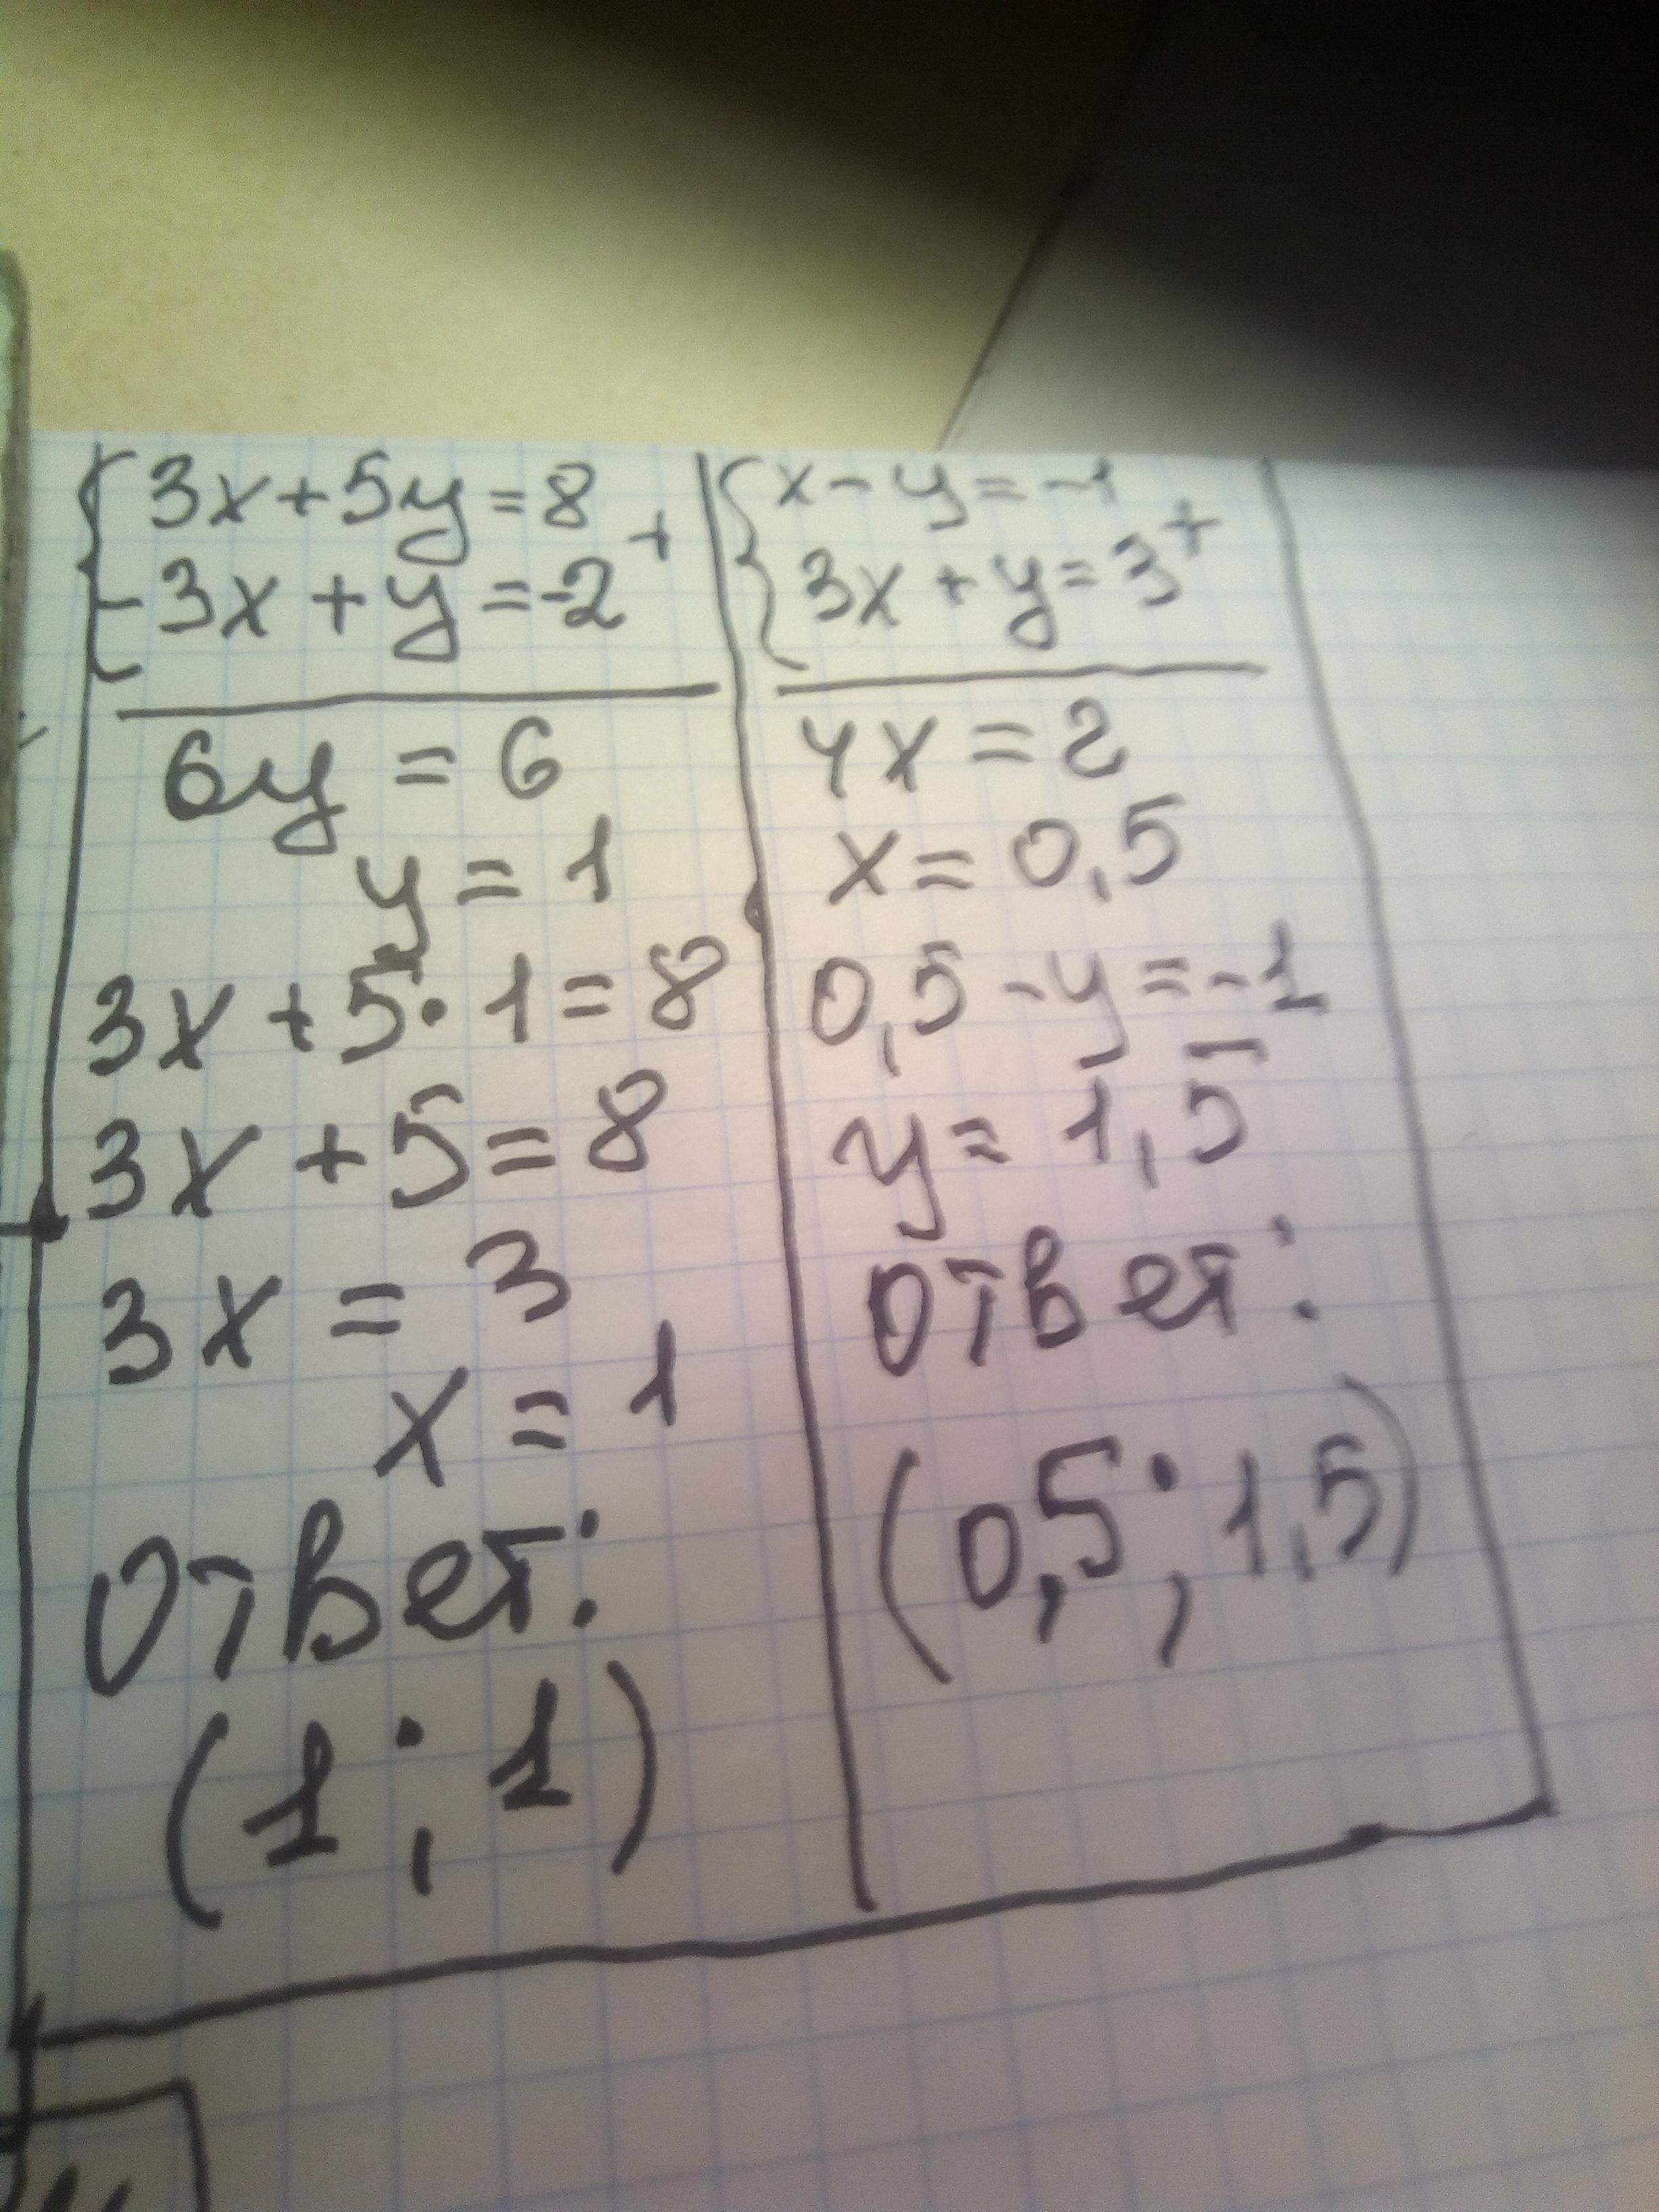 3x+5y=8
-3x+y=-2 +
6y=6
y=1
3x+5·1=8
3x+5=8
3x=3
x=1
Ответ:
(1;1)
x-y=-1
3x+y=3 +
4x=2
x=0,5
0,5-y=-1
y=1,5
Ответ:
(0,5;1,5)